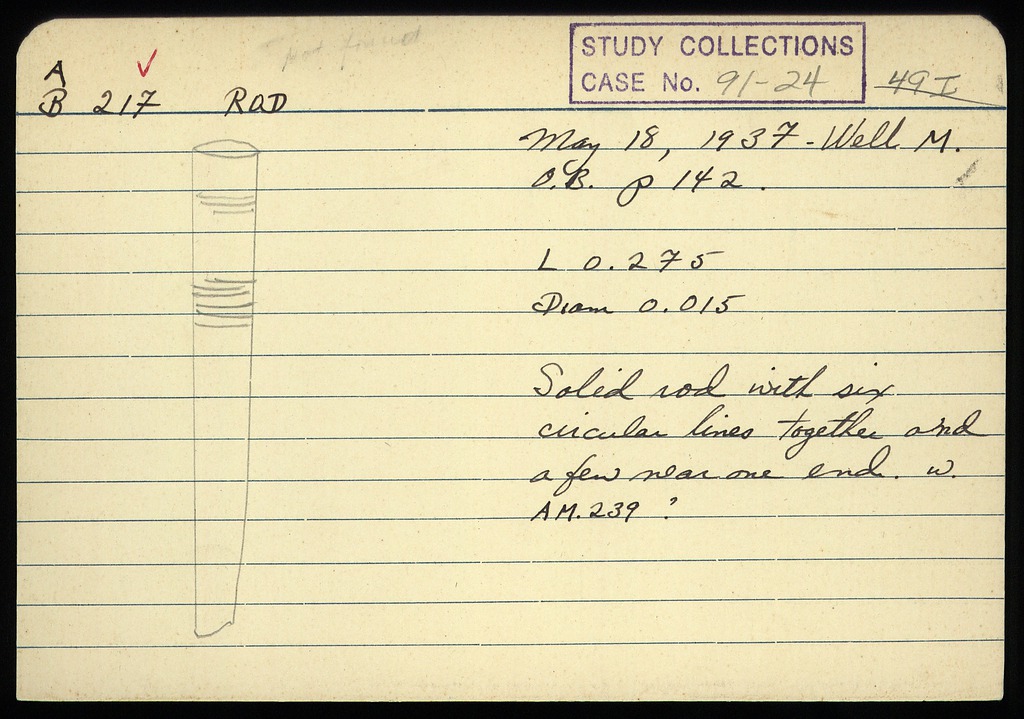 not found
STUDY COLLECTIONS
CASE No. 91-24 49 I
A
B 217 ROD
May 18, 1937 - Well M.
O.B. p 142.
L 0.275
Diam 0.015
Solid rod with six
circular lines together and
a few near one end. w.
AM. 239 ?